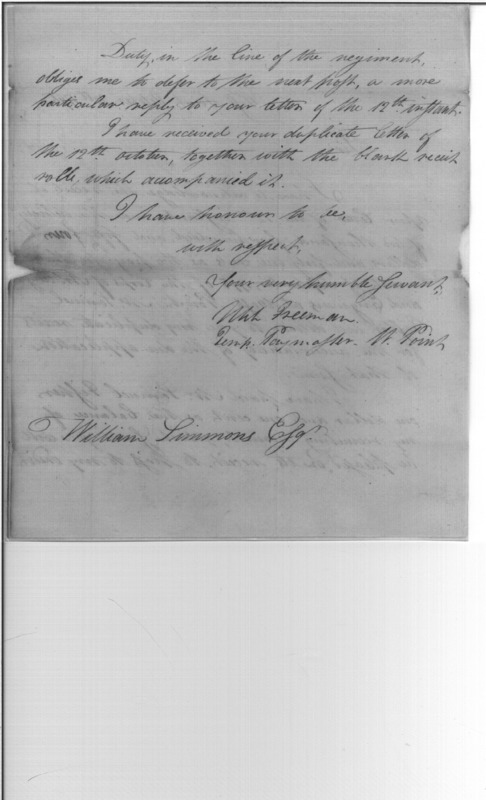 Duty, in the line of the regiment,
obliges me to defer to the next post, a more
particular reply to your letter of the 12th instant.
I have received your duplicate letter of
the 12th october, together with the blank receit
rolls, which accompanied it.
I have honour to be,
with respect,
Your very humble Servant,
Freeman.
Temp. Paymaster. W. Point
William Simmons Esqr.